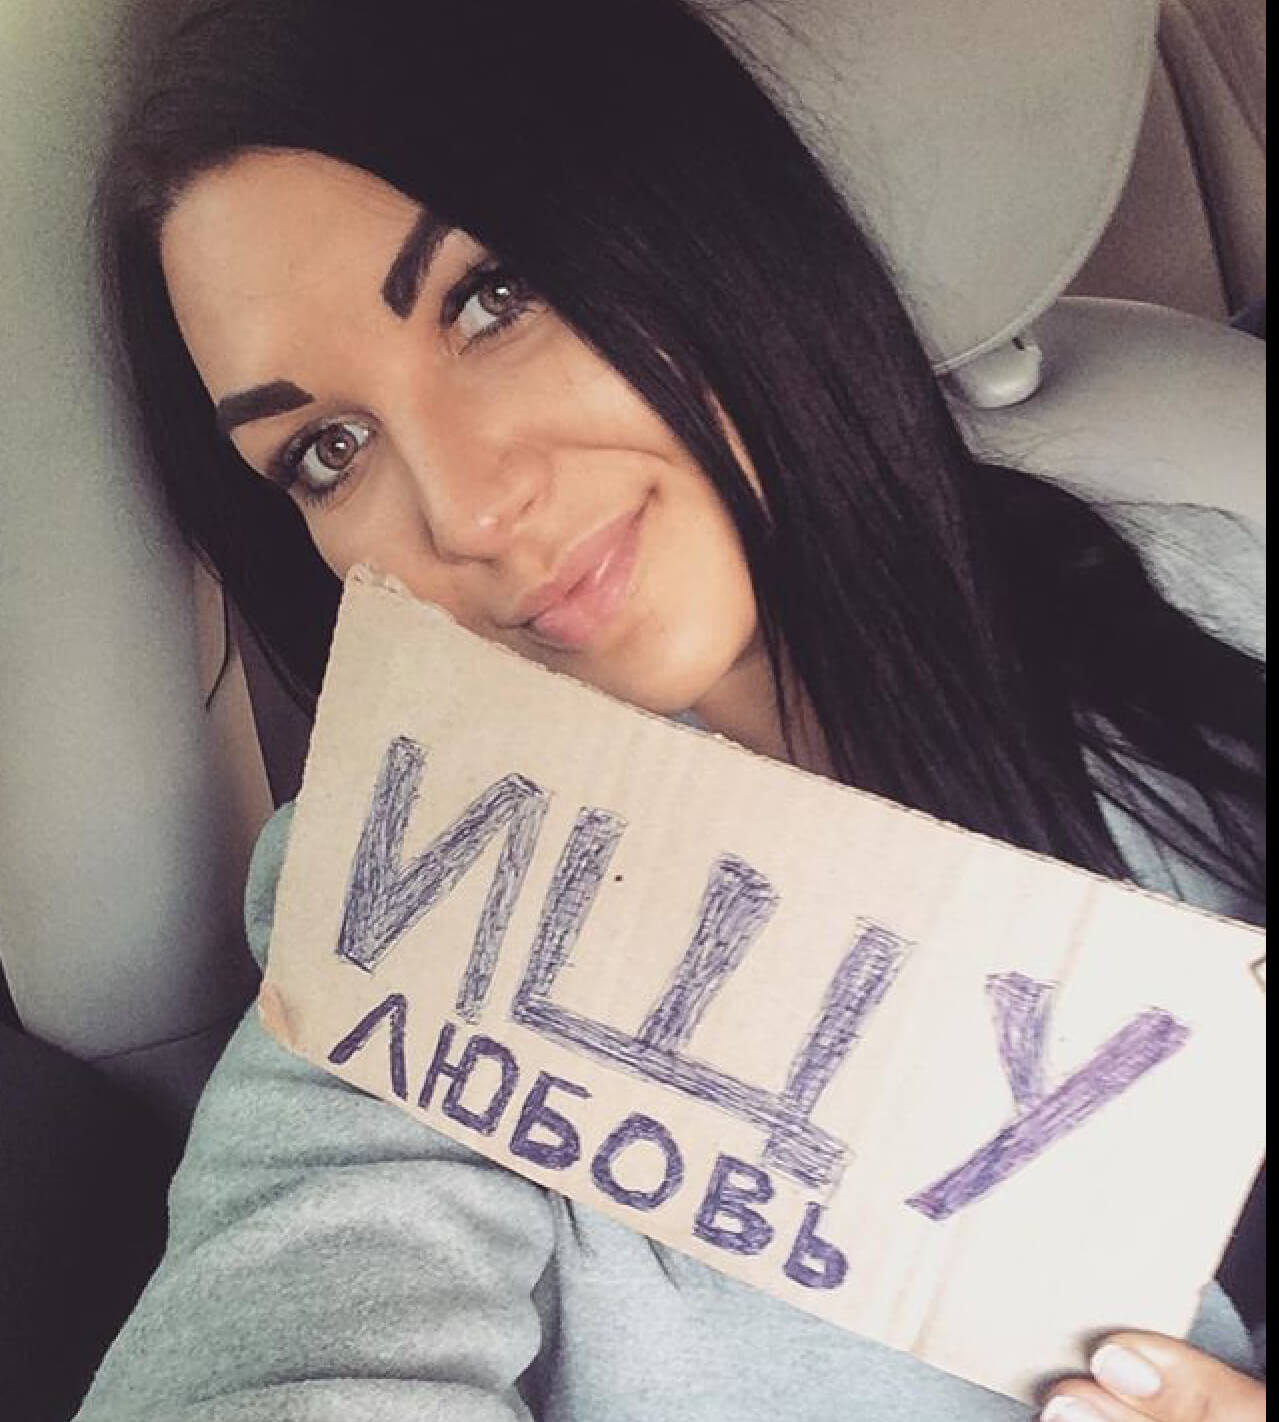 ИЩУ
ЛЮБОВЬ